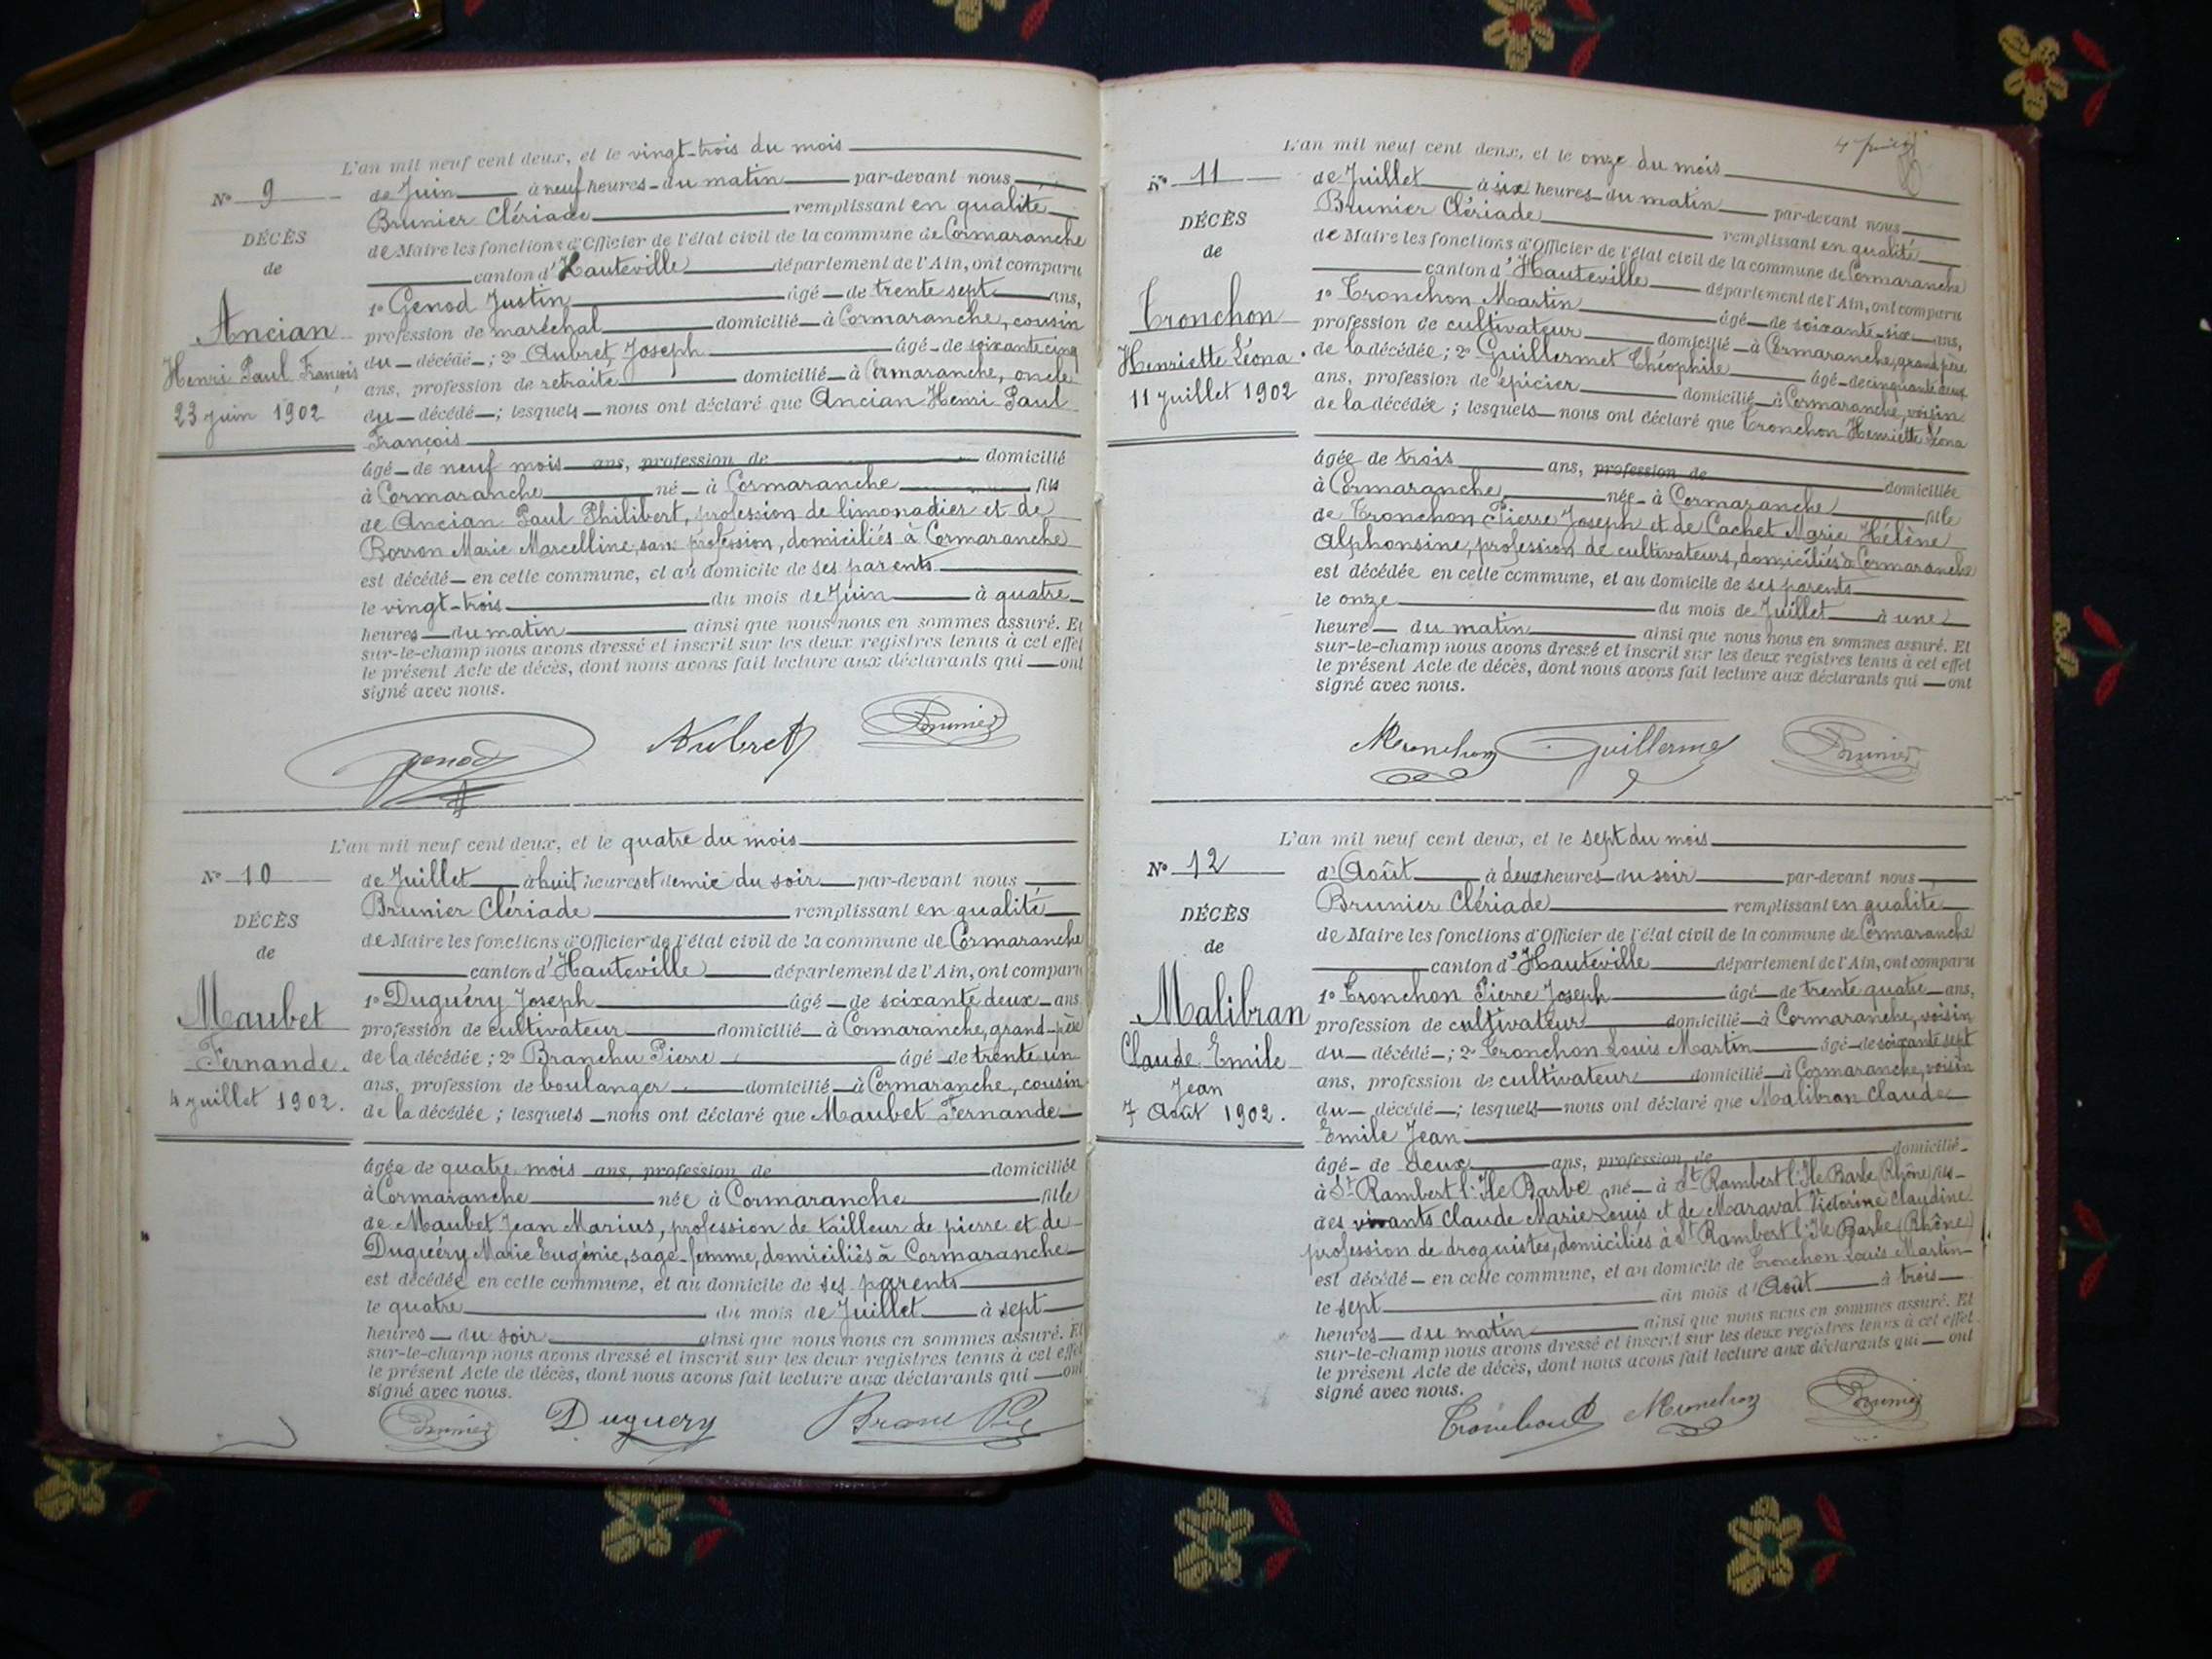 L'an mil neuf cent deux, et le vingt-trois du mois
N° 9
de Juin à neuf heures du matin par-devant nous
Brunier Clériade remplissant en qualité
DÉCÈS
de Maire les fonctions d'Officier de l'état civil de la commune de Cormaranche
de
canton d'Hauteville département de l'Ain, ont comparu
1° Genod Justin âgé de trente sept ans,
Ancian
profession de maréchal domicilié à Cormaranche, cousin
Henri Paul François
du décédé ; 2° Aubret Joseph âgé de soixante cinq
ans, profession de retraité domicilié à Cormaranche, oncle
23 juin 1902
du décédé ; lesquels nous ont déclaré que Ancian Henri Paul
François
âgé de neuf mois ans, profession de domicilié
à Cormaranche né à Cormaranche fils
de Ancian Paul Philibert, profession de limonadier et de
Borron Marie Marcelline, sans profession, domiciliés à Cormaranche
est décédé en cette commune, et au domicile de ses parents
le vingt-trois du mois de Juin à quatre
heures du matin ainsi que nous nous en sommes assuré. Et
sur-le-champ nous avons dressé et inscrit sur les deux registres tenus à cet effet
le présent Acte de décès, dont nous avons fait lecture aux déclarants qui ont
signé avec nous.
Genod Aubret Brunier
L'an mil neuf cent deux, et le quatre du mois
N° 10
de Juillet à huit heures et demie du soir par-devant nous
Brunier Clériade remplissant en qualité
DÉCÈS
de Maire les fonctions d'Officier de l'état civil de la commune de Cormaranche
de
canton d'Hauteville département de l'Ain, ont comparu
1° Duguéry Joseph âgé de soixante deux ans
Maubet
profession de cultivateur domicilié à Cormaranche, grand-père
Fernande.
de la décédée ; 2° Branchu Pierre âgé de trente un
ans, profession de boulanger domicilié à Cormaranche, cousin
4 juillet 1902.
de la décédée ; lesquels nous ont déclaré que Maubet Fernande
âgée de quatre mois ans, profession de domiciliée
à Cormaranche née à Cormaranche fille
de Maubet Jean Marius, profession de tailleur de pierre et de
Duguéry Marie Eugénie, sage-femme, domiciliés à Cormaranche
est décédée en cette commune, et au domicile de ses parents
le quatre du mois de Juillet à sept
heures du soir ainsi que nous nous en sommes assuré. Et
sur-le-champ nous avons dressé et inscrit sur les deux registres tenus à cet effet
le présent Acte de décès, dont nous avons fait lecture aux déclarants qui ont
signé avec nous.
Brunier Duguery
L'an mil neuf cent deux, et le onze du mois
N° 11
de Juillet à six heures du matin par-devant nous
Brunier Clériade remplissant en qualité
DÉCÈS
de Maire les fonctions d'Officier de l'état civil de la commune de Cormaranche
de
canton d'Hauteville département de l'Ain, ont comparu
1° Tronchon Martin âgé de soixante-six ans,
Tronchon
profession de cultivateur domicilié à Cormaranche, grand père
Henriette Léona.
de la décédée ; 2° Guillermet Théophile âgé de cinquante deux
ans, profession de épicier domicilié à Cormaranche, voisin
11 juillet 1902
de la décédée ; lesquels nous ont déclaré que Tronchon Henriette Léona
âgée de trois ans, profession de domiciliée
à Cormaranche née à Cormaranche fille
de Tronchon Pierre Joseph et de Cachet Marie Hélène
Alphonsine, profession de cultivateurs, domiciliés à Cormaranche
est décédée en cette commune, et au domicile de ses parents
le onze du mois de Juillet à une
heure du matin ainsi que nous nous en sommes assuré. Et
sur-le-champ nous avons dressé et inscrit sur les deux registres tenus à cet effet
le présent Acte de décès, dont nous avons fait lecture aux déclarants qui ont
signé avec nous.
MTronchon Guillermet Brunier
L'an mil neuf cent deux, et le sept du mois
N° 12
d'Août à deux heures du soir par-devant nous
Brunier Clériade remplissant en qualité
DÉCÈS
de Maire les fonctions d'Officier de l'état civil de la commune de Cormaranche
de
canton d'Hauteville département de l'Ain, ont comparu
1° Tronchon Pierre Joseph âgé de trente quatre ans,
Malibran
profession de cultivateur domicilié à Cormaranche, voisin
Claude Emile
du décédé ; 2° Tronchon Louis Martin âgé de soixante sept
Jean
ans, profession de cultivateur domicilié à Cormaranche, voisin
7 Août 1902.
du décédé ; lesquels nous ont déclaré que Malibran Claude
Emile Jean
âgé de deux ans, profession de domicilié
à St Rambert l'Ile Barbe né à St Rambert l'Ile Barbe Rhône fils
des vivants Claude Marie Louis et de Maravat Victorine Claudine
profession de droguistes, domiciliés à St Rambert l'Ile Barbe (Rhône)
est décédé en cette commune, et au domicile de Tronchon Louis Martin
le sept du mois d'Août à trois
heures du matin ainsi que nous nous en sommes assuré. Et
sur-le-champ nous avons dressé et inscrit sur les deux registres tenus à cet effet
le présent Acte de décès, dont nous avons fait lecture aux déclarants qui ont
signé avec nous.
MTronchon Brunier